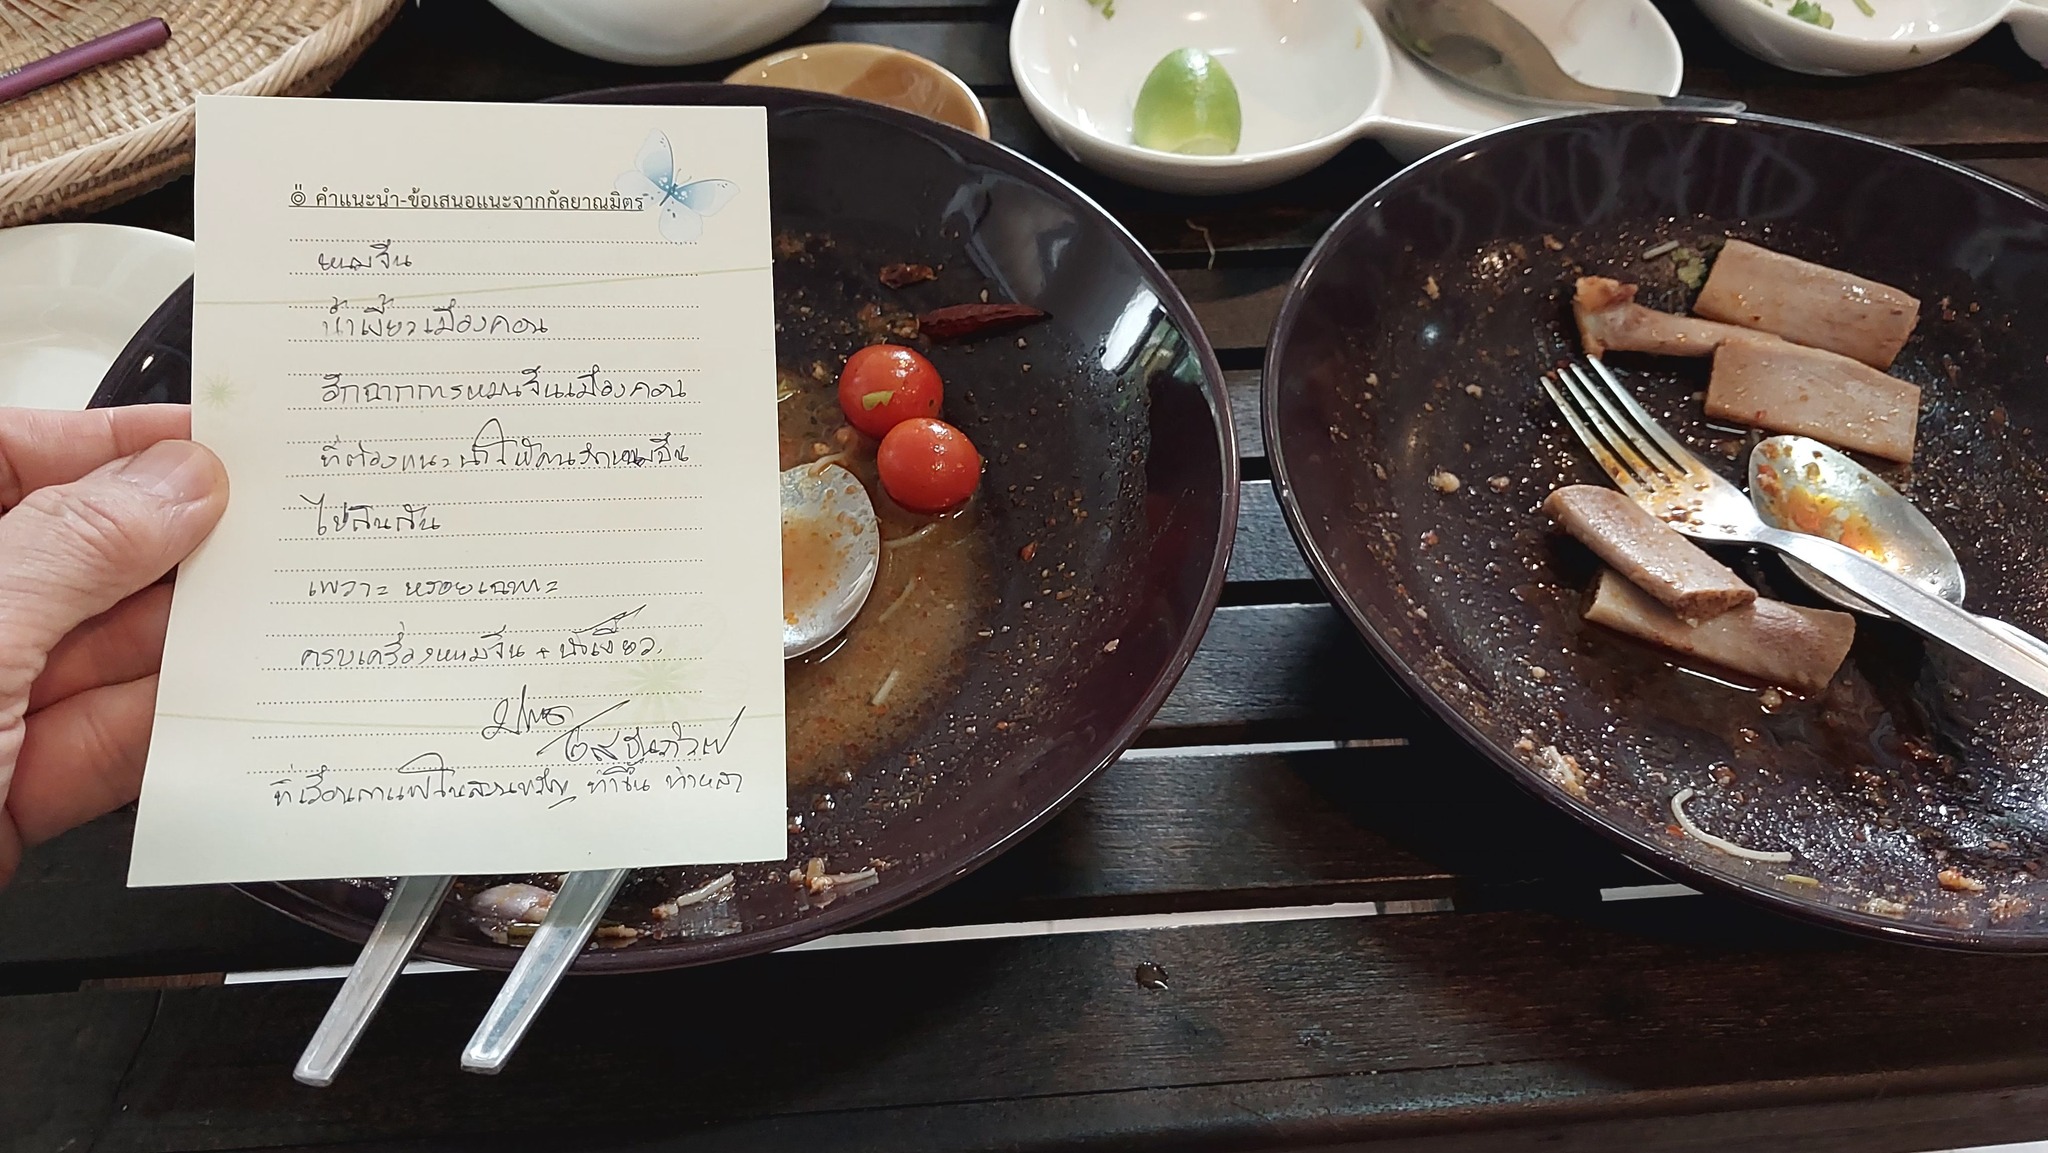 ๏ คำแนะนำ-ข้อเสนอแนะจากกัลยาณมิตร
ขนมจีน
น้ำเงี้ยวเมืองคอน
อีกฉากการขนมจีนเมืองคอน
ที่ต้องแนะนำให้คนรักขนมจีน
ไปลิ้มลัน
เพราะ หรอยเฉพาะ
ครบเครื่องขนมจีน + น้ำเงี้ยว.
ที่เรือนกาแฟในสวนขวัญ ท่าชี้น ท่าหลา